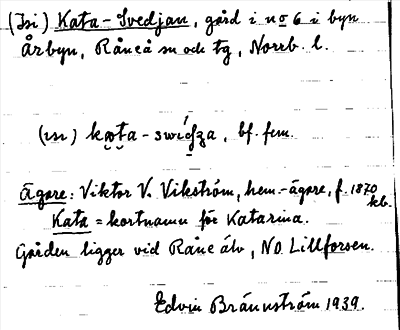 (Isi) Kata-Svedjan, gård i nº 6 i byn
Årbyn, Råneå sn och tg, Norrb. l.
bf. fem.
Ägare: Viktor V. Vikström, hem.-ägare, f. 1870
kb.
Kata = kortnamn för Katarina.
Gården ligger vid Råne älv, NO Lillforsen.
Edvin Brännström 1939.